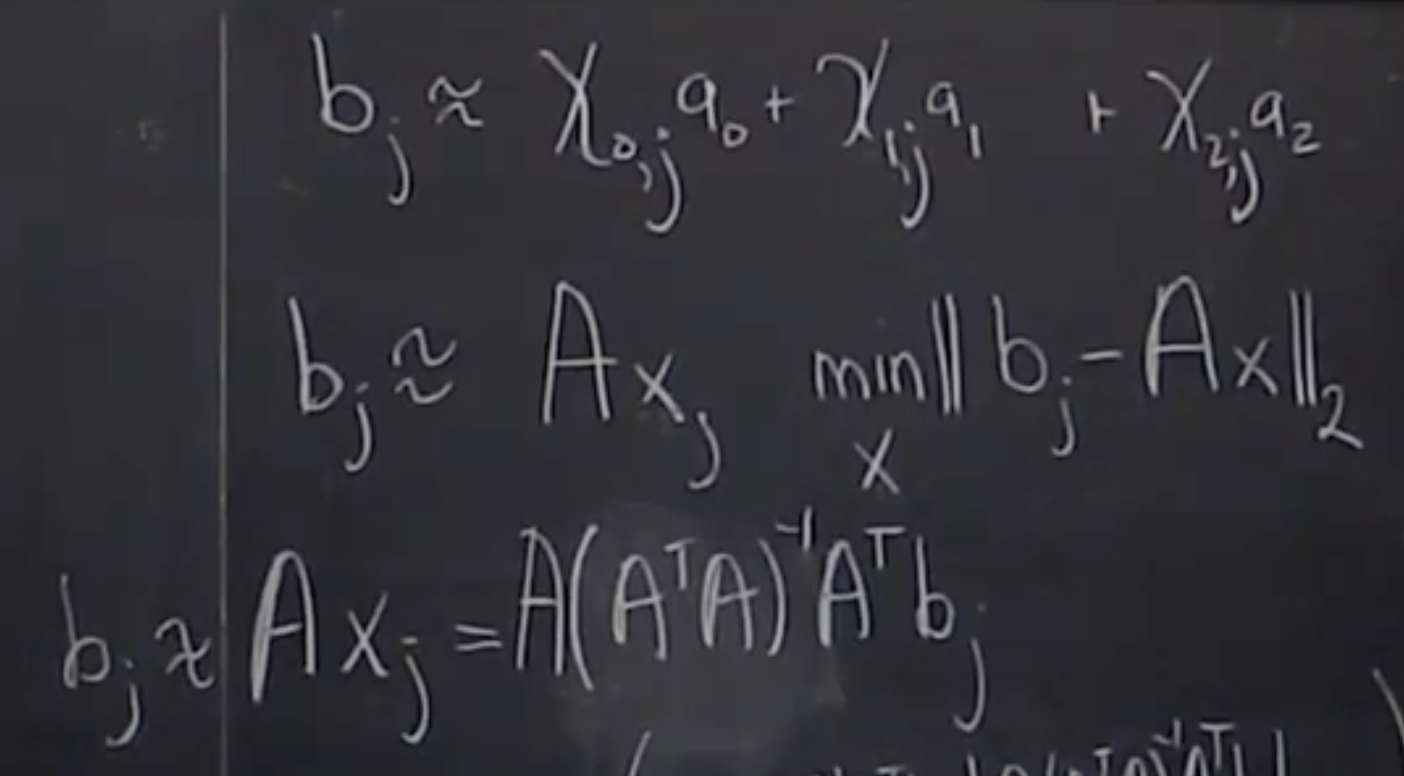 b_j ≈ χ_{0,j} a_0 + χ_{1,j} a_1 + χ_{2,j} a_2
b_j ≈ A x_j min_x ‖ b_j − A x ‖_2
b_j ≈ A x_j = A(A^T A)^{-1} A^T b_j